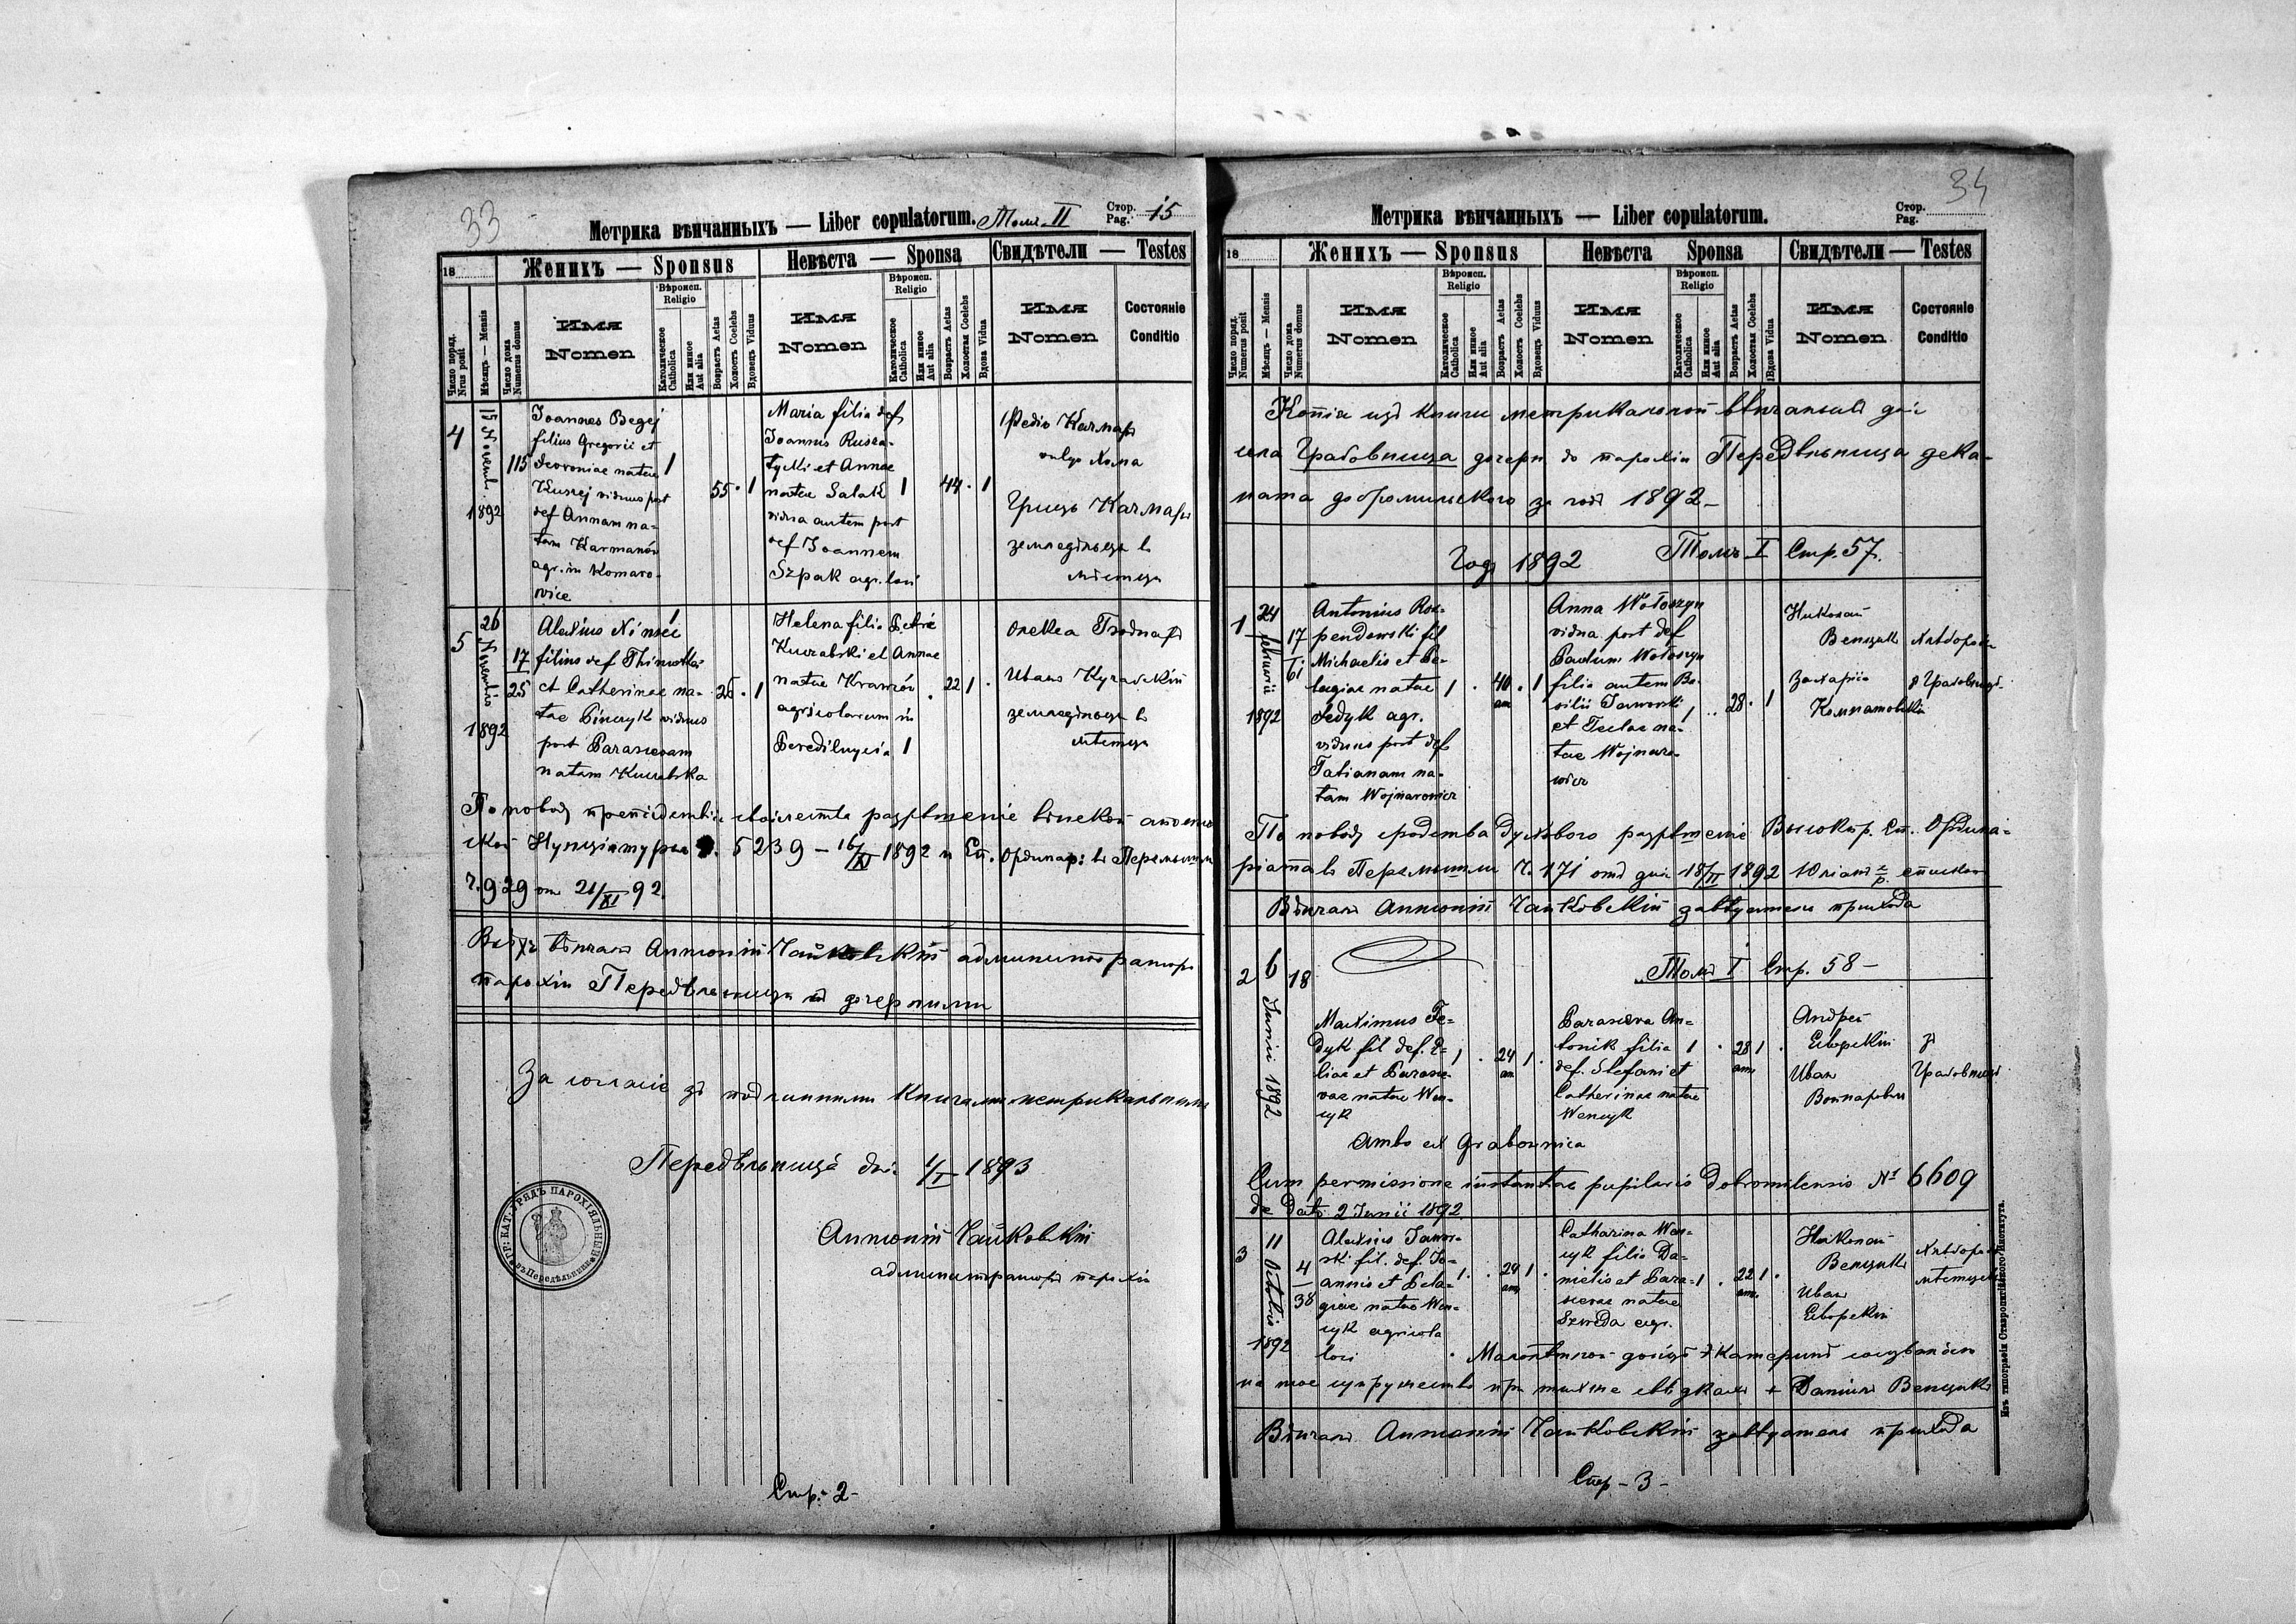 33
Метрика вѣнчанныхъ — Liber copulatorum. Томъ II
Стор. Pag. 15
18
Женихъ — Sponsus
Невѣста — Sponsa
Свидѣтели — Testes
Число поряд. Nrus posit
Мѣсяцъ — Mensis
Число дома Numerus domus
Имя Nomen
Вѣроисп. Religio
Католическое Catholica
Или иное Aut alia
Возрастъ Aetas
Холостъ Coelebs
Вдовецъ Viduus
Имя Nomen
Вѣроисп. Religio
Католическое Catholica
Или иное Aut alia
Возрастъ Aetas
Холостая Coelebs
Вдова Vidua
Имя Nomen
Состояніе Conditio
4
15 Novemb. 1892
115
Joannes Begej
filius Gregorii et
natae
Kuszej viduus post
def Annam na-
tam Karmanów
agr. in Komaro-
wice
1
55 · 1
Maria filia def
Joannis Rusza-
tycki et Annae
natae Salak
vidua autem post
def Joannem
Szpak agr. loci
1
44 · 1
Федіо Качмаръ
vulgo Хома
Грицъ Качмаръ
земледѣльцы въ
мѣстци
5
26 Novembris 1892
17
25
Alexius
filius def
et Catherinae na-
tae viduus
post Parascevam
natam
1
26 · 1
Helena filia Petri
et Annae
natae Krawców
agricolarum in
1
22 1 ·
Олекса
Иванъ
земледѣльцы въ
мѣстци
По поводу разрѣшеніе вѣнской апостол
ской Нунціятуры Ч. 5239 — 16/XI 1892 и Еп. Ординар: въ Перемышли
Ч. 929 от 21/XI 92.
вѣнчалъ Антоній Чайковскій администраторъ
парохіи Передѣльница дочерними
За согласіе зъ подлинными книгами метрикальными
Передѣльница дня 1/I 1893
Антоній Чайковскій
администраторъ парохіи
ГР: КАТ: УРЯДЪ ПАРОХІЯЛЬНЫЙ въ Передѣльници
Стр. - 2 -
34
Метрика вѣнчанныхъ — Liber copulatorum.
Стор. Pag.
18
Женихъ — Sponsus
Невѣста Sponsa
Свидѣтели — Testes
Число поряд. Numerus posit
Мѣсяцъ — Mensis
Число дома Numerus domus
Имя Nomen
Вѣроисп. Religio
Католическое Catholica
Или иное Aut alia
Возрастъ Aetas
Холостъ Coelebs
Вдовецъ Viduus
Имя Nomen
Вѣроисп. Religio
Католическое Catholica
Или иное Aut alia
Возрастъ Aetas
Холостая Coelebs
Вдова Vidua
Имя Nomen
Состояніе Conditio
Копія изъ книги метрикальной вѣнчаныхъ для
села Грабовница дочерн. до парохіи Передѣльница дека-
ната добромильского за годъ 1892 —
Годъ 1892 Томъ I Стр. 57.
1
24 Februarii 1892
17
61
Antonius Roz-
pendowski fil
Michaelis et Pe-
lagiae natae
Fedyk agr.
viduus post def
Tatianam na-
tam Wojnarowicz
1 · 40 an · 1
Anna Wołoszyn
vidua post def
Paulum Wołoszyn
filia autem Ba-
silii Jaworski
et Teclae na-
tae Wojnaro-
wicz
1 · 28 · 1
Николай
Венцыкъ
Захарія
По поводу сродства разрѣшеніе Высокопр. Еп. Ордина-
ріята въ Перемышли Ч. 171 отъ дня 18/II 1892 Юліанъ в. р. епископъ
Вѣнчалъ Антоній Чайковскій завѣдатель прихода
Томъ I Стр. 58 —
2
6 Junii 1892
18
Maximus Fe-
dyk fil def. E-
liae et Parasce-
vae natae Wen-
cyk
1 · 24 an 1 ·
Parasceva An-
tonik filia
def. Stefani et
Catherinae natae
Wencyk
1 · 28 an 1 ·
Андрей
Яворскій
Иван
зъ
Грабовници
Ambo ex Grabownica
Cum permissione instantiae pupilaris Dobromilensis № 6609
de dato 2 Junii 1892
3
11 Octobris 1892
4
38
Alexius Jawor-
ski fil. def. Jo-
annis et Pela-
giae natae Wen-
cyk agricola
loci
1 · 24 an 1 ·
Catharina Wen-
cyk filia Da-
nielis et Para-
scevae natae
Szweda agr.
1 · 22 an. 1 ·
Николай
Венцыкъ
Иванъ
Яворскій
на тое супружество при тыхже свѣдкахъ + Данило Венцыкъ
Вѣнчалъ Антоній Чайковскій завѣдатель прихода
Стр - 3 -
Изъ типографіи Ставропигійского Института.